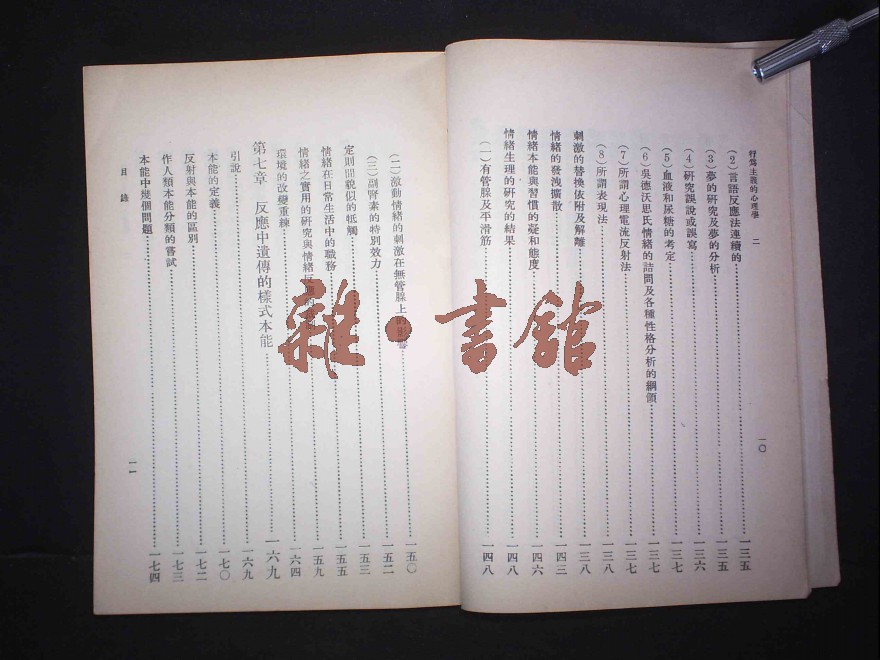 行為主義的心理學 二
一〇
(2)言語反應法連續的……一三五
(3)夢的研究及夢的分析……一三五
(4)研究誤說或誤寫……一三六
(5)血液和尿糖的考定……一三七
(6)吳德沃思氏情緒的詰問及各種性格分析的綱領……一三七
(7)所謂心理電流反射法……一三七
(8)所謂表現法……一三八
刺激的替換依附及解離……一三八
情緒的發洩擴散……一四三
情緒本能與習慣的凝和態度……一四六
情緒生理的研究的結果……一四八
(一)有管腺及平滑筋……一四八
(二)激動情緒的刺激在無管腺上的影響……一五〇
(三)副腎素的特別效力……一五二
定則間貌似的牴觸……一五三
情緒在日常生活中的職務……一五五
情緒之實用的研究與情緒反應……一五九
環境的改變重練……一六四
第七章 反應中遺傳的樣式本能……一六九
引說……一六九
本能的定義……一七〇
反射與本能的區別……一七二
作人類本能分類的嘗試……一七三
本能中幾個問題……一七四
目錄
一一
雜·書館